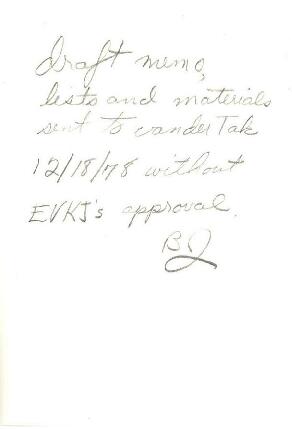 draft memo,
lists and materials
sent to vander Tak
12/18/78 without
EVKJ's approval.
BJ